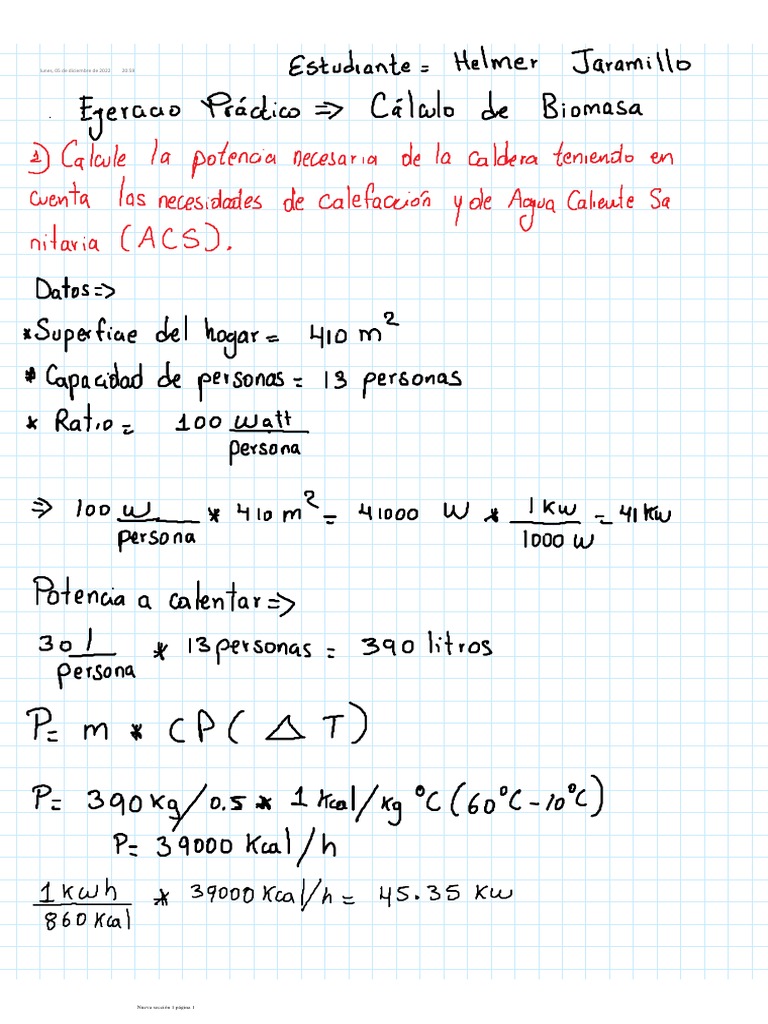 lunes, 05 de diciembre de 2022 20:59
Estudiante = Helmer Jaramillo
Ejercicio Práctico => Cálculo de Biomasa
1) Calcule la potencia necesaria de la caldera teniendo en
cuenta las necesidades de calefacción y de Agua Caliente Sa
nitaria (ACS).
Datos =>
* Superficie del hogar = 410 m²
* Capacidad de personas = 13 personas
* Ratio = 100 watt/persona
=> 100 w/persona * 410 m² = 41000 W * 1 Kw/1000 W = 41 Kw
Potencia a calentar =>
30 l/persona * 13 personas = 390 litros
P = m * CP ( Δ T)
P = 390 kg/0.5 * 1 kcal/kg °C (60°C - 10°C)
P = 39000 Kcal/h
1 Kwh/860 Kcal * 39000 Kcal/h = 45.35 Kw
Nueva sección 1 página 1